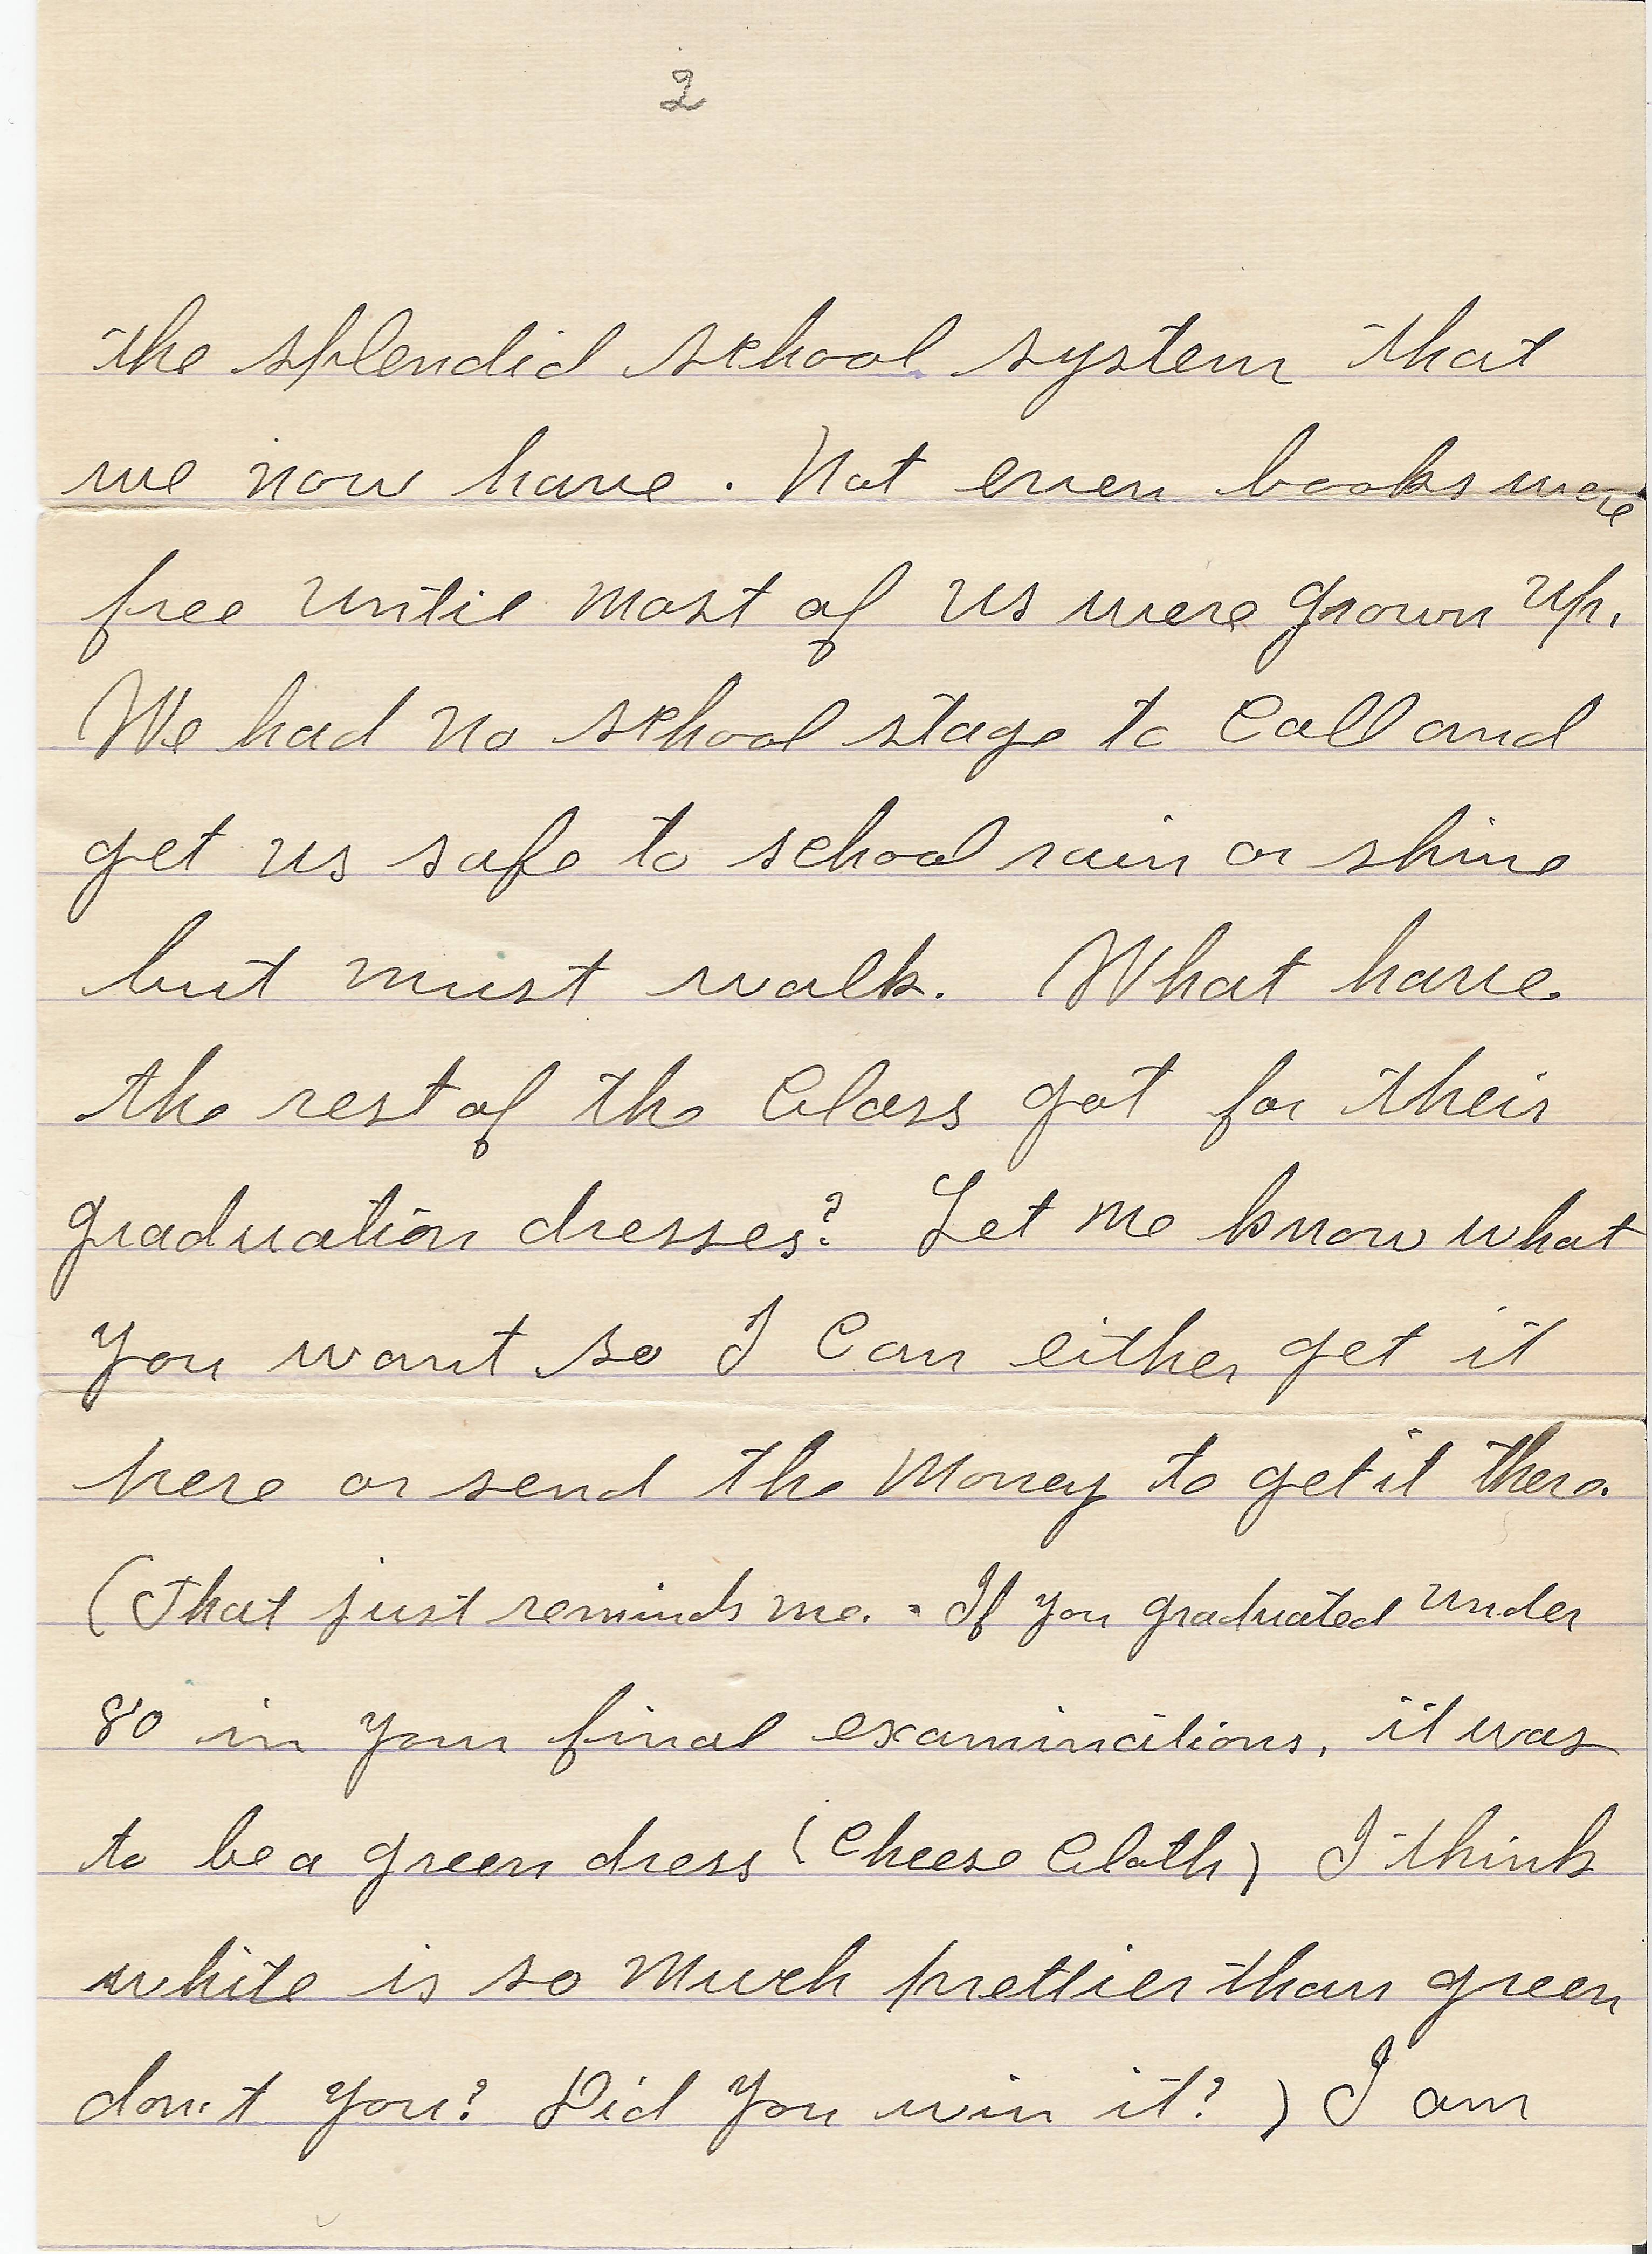 2
the splendid school system that
we now have. Not even books were
free until most of us were grown up.
We had no school stage to Call and
get us safe to school rain or shine
but must walk. What have
the rest of the Class got for their
graduation dresses? Let me know what
you want so I Can either get it
here or send the Money to get it there.
(That just reminds me. - If you graduated under
80 in your final examinations, it was
to be a green dress (Cheese Cloth) I think
white is so Much prettier than green
don't you? Did you win it?) I am